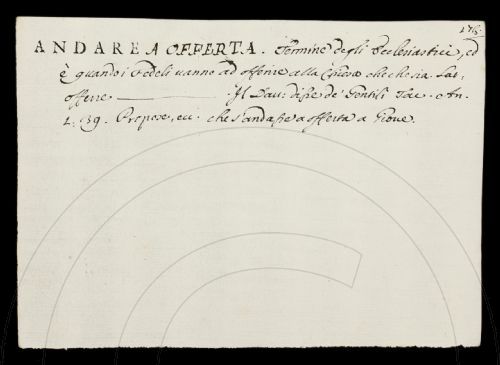 176.
ANDARE A OFFERTA. Termine degli Ecclesiastici, ed
è quando i Fedeli vanno ad offerire alla Chiesa che che sia. Lat.
offerre ———— . Il Dav: disse de' Gentili Tac. An.
1. 39. Propose, ec: che s'andasse a offerta a Giove.